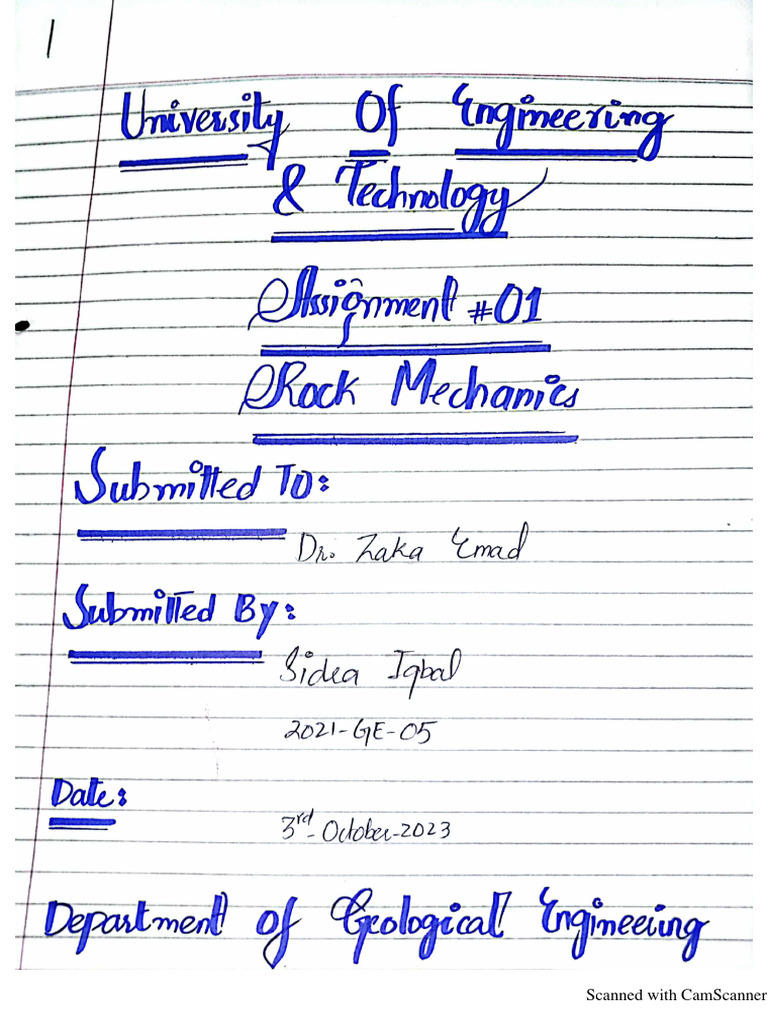 1
University Of Engineering
& Technology
Assignment #01
Rock Mechanics
Submitted To:
Dr. Zaka Emad
Submitted By:
Sidra Iqbal
2021-GE-05
Date:
3rd-October-2023
Department of Geological Engineering
Scanned with CamScanner